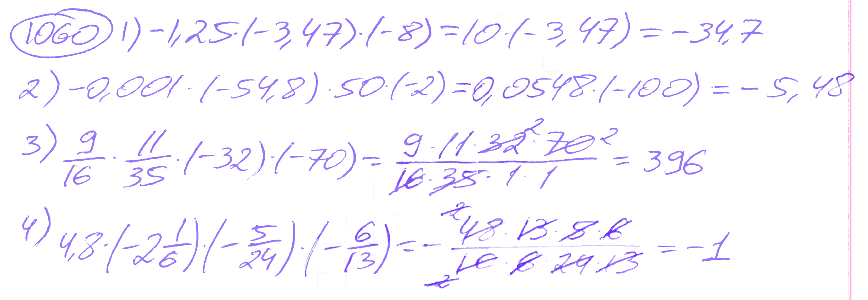 1060 1) -1,25·(-3,47)·(-8)=10·(-3,47)=-34,7
2) -0,001·(-54,8)·50·(-2)=0,0548·(-100)=-5,48
3) 9/16 · 11/35 · (-32)·(-70) = 9·11·32²·70²/16·35·1·1 = 396
4) 4,8·(-2 1/6)·(-5/24)·(-6/13) = - 2 48·13·5·6/2 10·6·24·13 = -1